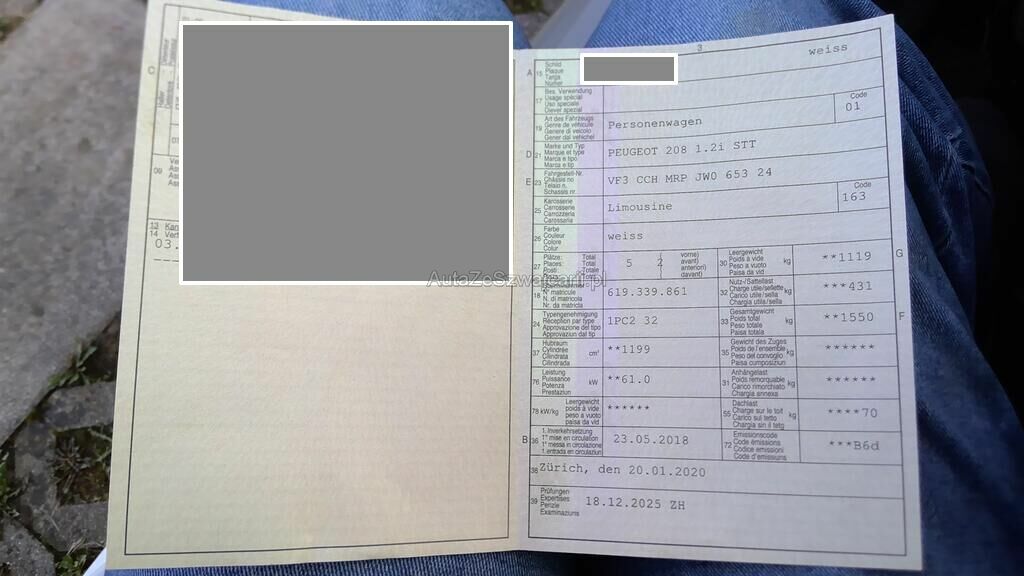 3
weiss
A 15 Schild
Plaque
Targa
Numer
17 Bes. Verwendung
Usage spécial
Uso speciale
Diever spezial
Code
01
19 Art des Fahrzeugs
Genre de véhicule
Genere di veicolo
Gener dal vehichel
Personenwagen
D 21 Marke und Typ
Marque et type
Marca e tipo
Marca e tip
PEUGEOT 208 1.2i STT
E 23 Fahrgestell-Nr.
Châssis no
Telaio n.
Schassis nr.
VF3 CCH MRP JW0 653 24
25 Karosserie
Carrosserie
Carrozzeria
Carossaria
Limousine
Code
163
26 Farbe
Couleur
Colore
Colur
weiss
27 Plätze: Total
Places: Total
Posti: Totale
5 2 vorne)
avant)
anteriori)
davant)
30 Leergewicht
Poids à vide
Peso a vuoto
Paisa da vid
kg
**1119
G
AutaZeSzwajcarii.pl
18
N° matricule
N. di matricola
Nr. da matricla
619.339.861
32 Nutz-/Sattellast
Charge utile/sellette
Carico utile/sella
Chargia utila/sella
kg
***431
24 Typengenehmigung
Réception par type
Approvazione del tipo
Approvaziun dal tip
1PC2 32
33 Gesamtgewicht
Poids total
Peso totale
Paisa totala
kg
**1550
F
37 Hubraum
Cylindrée
Cilindrata
Cilindrada
cm³
**1199
35 Gewicht des Zuges
Poids de l'ensemble
Peso del convoglio
Paisa cumposiziun
kg
******
76 Leistung
Puissance
Potenza
Prestaziun
kW
**61.0
31 Anhängelast
Poids remorquable
Carico rimorchiato
Chargia annexa
kg
******
78 kW/kg Leergewicht
poids à vide
peso a vuoto
paisa da vid
******
55 Dachlast
Charge sur le toit
Carico sul tetto
Chargia sin il tetg
kg
****70
B 36 1. Inverkehrsetzung
1re mise en circulation
1a messa in circolazione
1. entrada en circulaziun
23.05.2018
72 Emissionscode
Code émissions
Codice emissioni
Code d'emissiuns
***B6d
38 Zürich, den 20.01.2020
39 Prüfungen
Expertises
Perizie
Examinaziuns
18.12.2025 ZH
C
09
13
14
03.